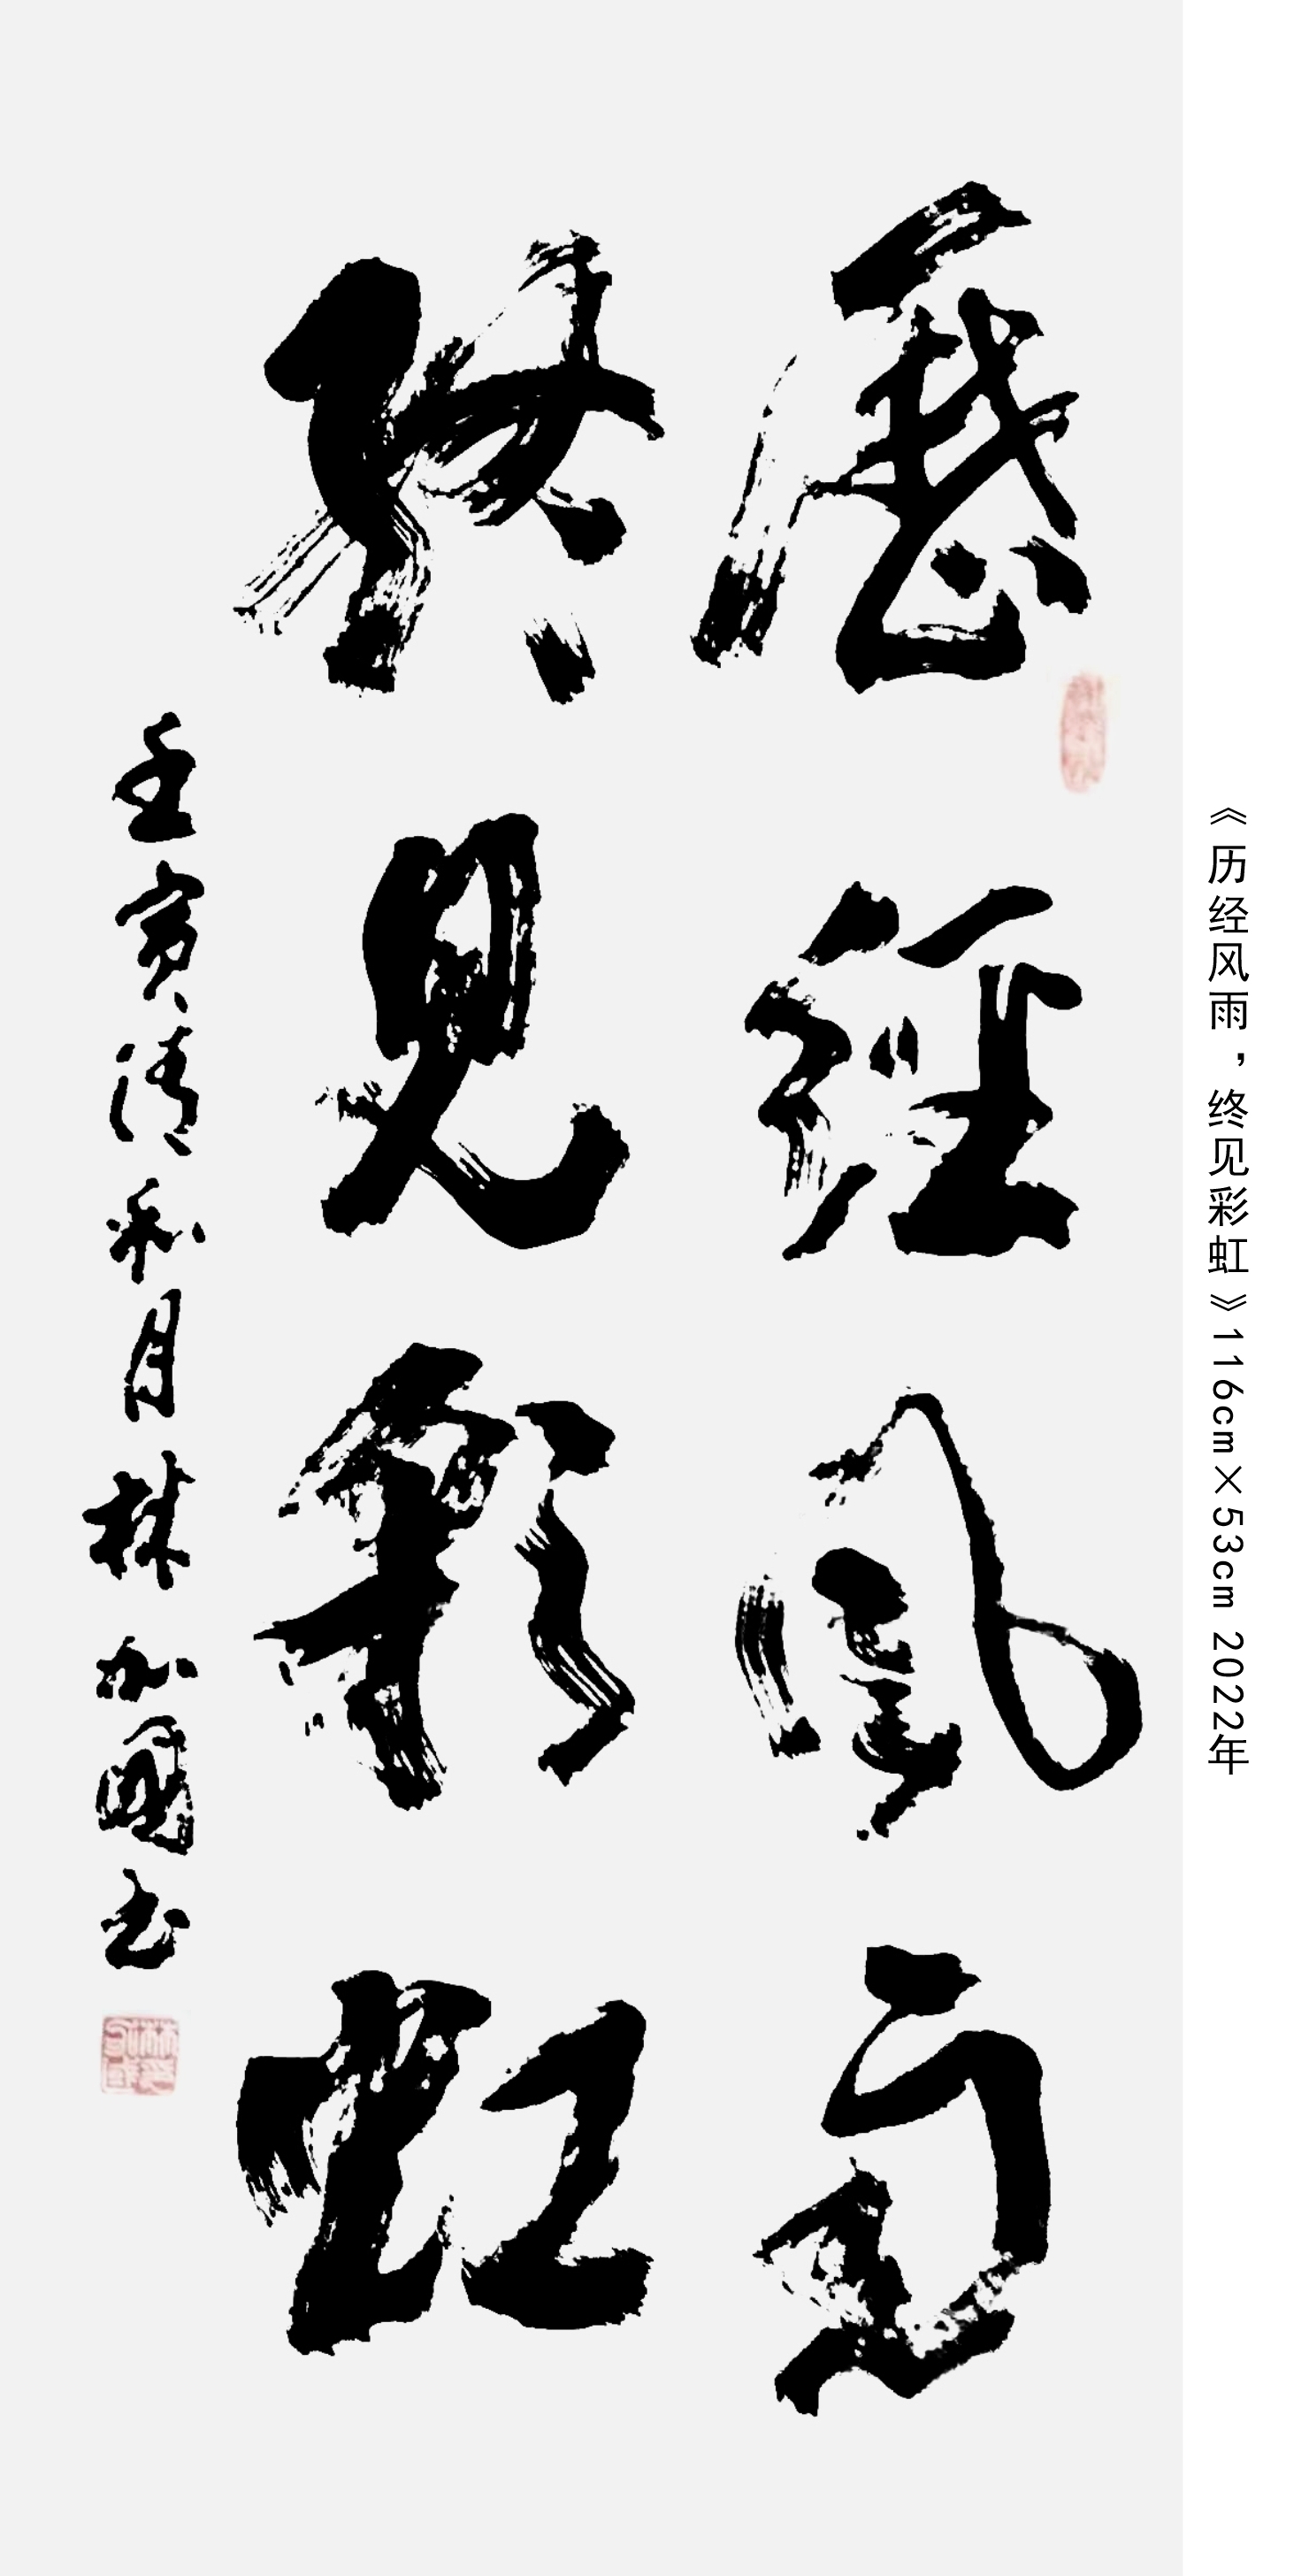 歷經風雨
終見彩虹
壬寅清和月林加國书
《历经风雨，终见彩虹》116cm×53cm 2022年